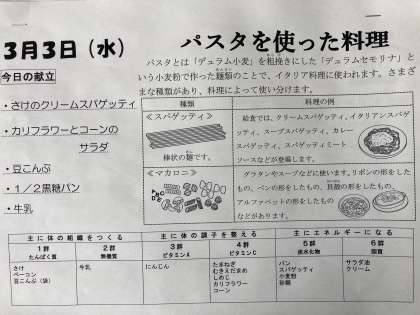 3月3日（水）
パスタを使った料理
今日の献立
・さけのクリームスパゲッティ
・カリフラワーとコーンの
サラダ
・豆こんぶ
・１／２黒糖パン
・牛乳
パスタとは「デュラム小麦」を粗挽きにした「デュラムセモリナ」と
いう小麦粉で作った麺類のことで、イタリア料理に使われます。さまざ
まな種類があり、料理によって使い分けます。
種類
料理の例
≪スパゲッティ≫
棒状の麺です。
給食では、クリームスパゲッティ、イタリアンスパゲ
ッティ、スープスパゲッティ、カレー
スパゲッティ、スパゲッティミート
ソースなどが登場します。
≪マカロニ≫
グラタンやスープなどに使います。リボンの形をした
もの、ペンの形をしたもの、貝殻の形をしたもの、
アルファベットの形をしたもの
などがあります。
主に体の組織をつくる
主に体の調子を整える
主にエネルギーになる
1群
たんぱく質
2群
無機質
3群
ビタミンA
4群
ビタミンC
5群
炭水化物
6群
脂質
さけ
ベーコン
豆こんぶ（袋）
牛乳
にんじん
たまねぎ
むきえだまめ
しめじ
カリフラワー
コーン
パン
スパゲッティ
小麦粉
砂糖
サラダ油
クリーム